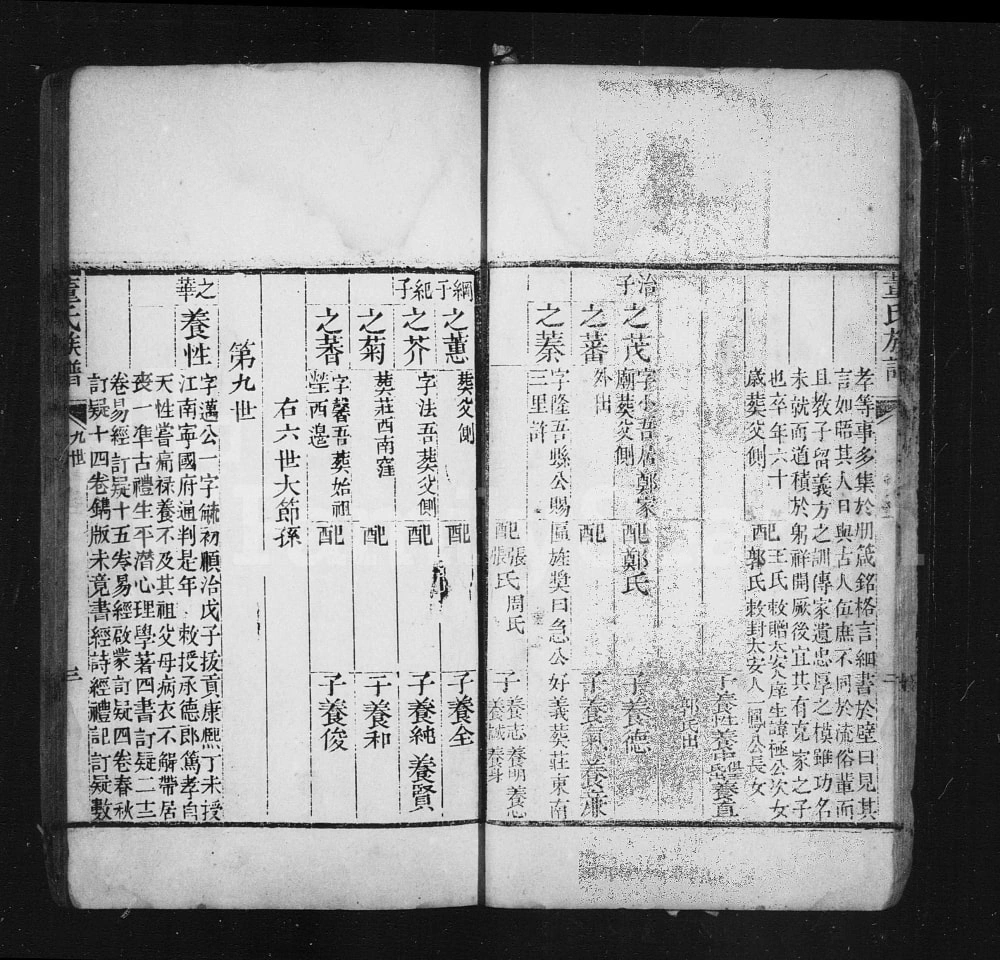 孝等事多集於册箴銘格言細書於壁曰見其
言如晤其人日與古人伍廡不同於流俗輩而
且教子留義方之訓傳家遺忠厚之模雖功名
未就而道積於躬祥開厥後宜其有克家之子
也卒年六十 配王氏敕贈太安人庠生諱極公次女
歲葬父側 郭氏敕封太安人 公長女
子養性養中 養直
郭氏出
治子 之茂 字小吾居鄭家廟葬父側 配鄭氏 子養德
之蕃 外出 配 子養氣 養謙
之蓁 字隆吾縣公賜區旌奬曰急公好義葬莊東南
三里許 配張氏 周氏 張氏 子養志 養明 養身
綱子 之蕙 葬父側 配 子養全
紀子 之芥 字法吾葬父側 配 子養純 養賢
之菊 葬莊西南窪 配 子養和
之蓍 字馨吾葬始祖塋西邊 配 子養俊
右六世大節孫
第九世
之華 養性 字邁公一字毓初順治戊子拔貢康熙丁未授
江南寧國府通判是年 敕授承德郎篤孝自
天性嘗痛祿養不及其祖父母病衣不解帶居
喪一準古禮生平潛心理學著四書訂疑二十二
卷易經訂疑十五卷易經啟蒙訂疑四卷春秋
訂疑十四卷鐫版未竟書經詩經禮記訂疑數
董氏族譜 九世 三